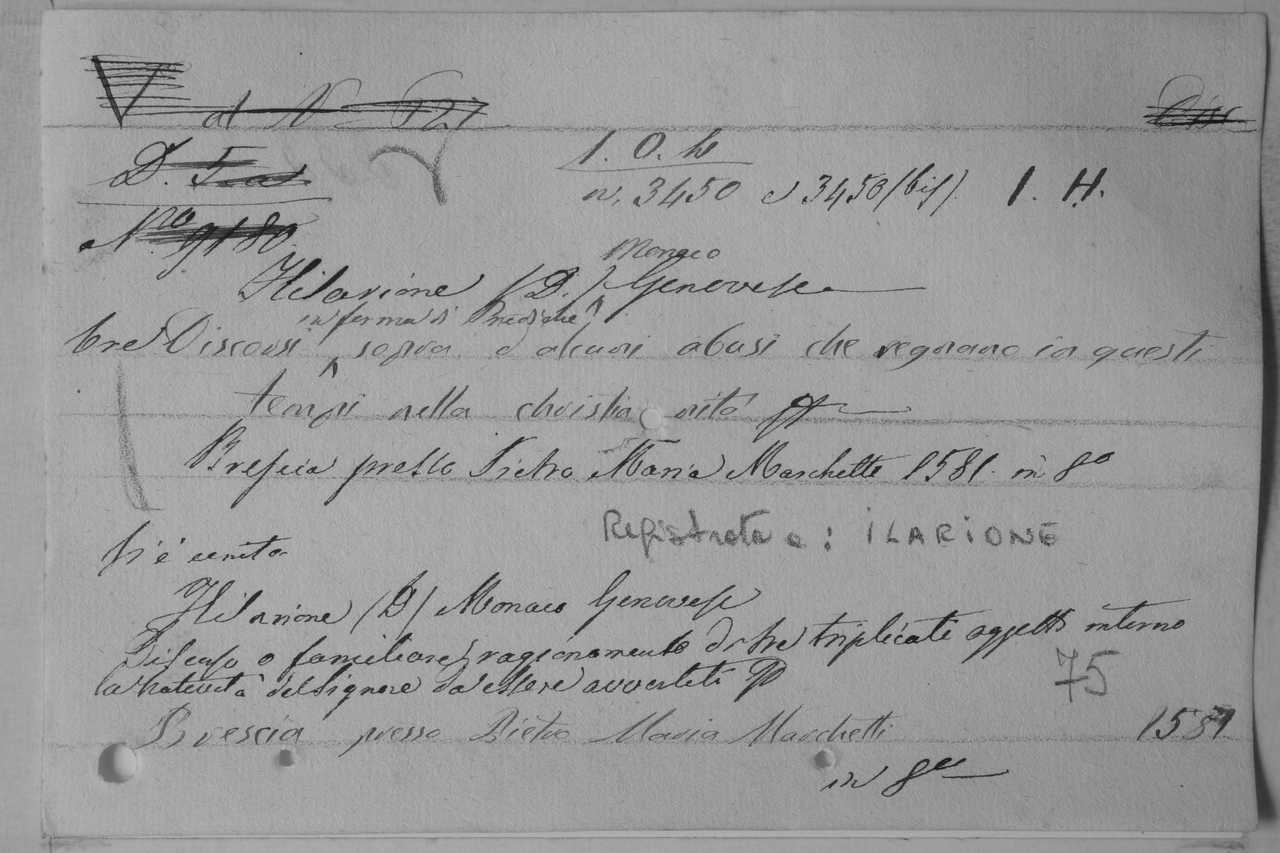 I. O. h
n. 3450 e 3450 (bis) I. H.
Monaco
Hilarione (D.) Genovese
in forma di Prediche
tre Discorsi sopra d'alcuni abusi che regnano in questi
tempi nella christianità
Brescia presso Pietro Maria Marchetti 1581. in 8º
Registrata a: ILARIONE
Vi è unito
Hilarione (D) Monaco Genovese
Discorso o familiare ragionamento di tre triplicati oggetti intorno
la natività del Signore da essere avvertiti
75
Brescia presso Pietro Maria Marchetti 1581
in 8vo